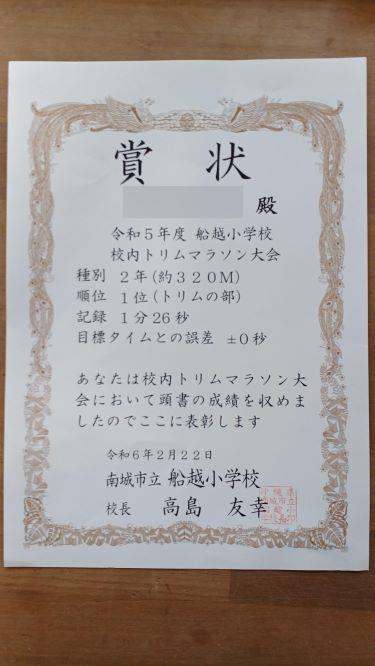 賞状
殿
令和5年度 船越小学校
校内トリムマラソン大会
種別 2年(約320M)
順位 1位(トリムの部)
記録 1分26秒
目標タイムとの誤差 ±0秒
あなたは校内トリムマラソン大
会において頭書の成績を収めま
したのでここに表彰します
令和6年2月22日
南城市立 船越小学校
校長 高島 友幸